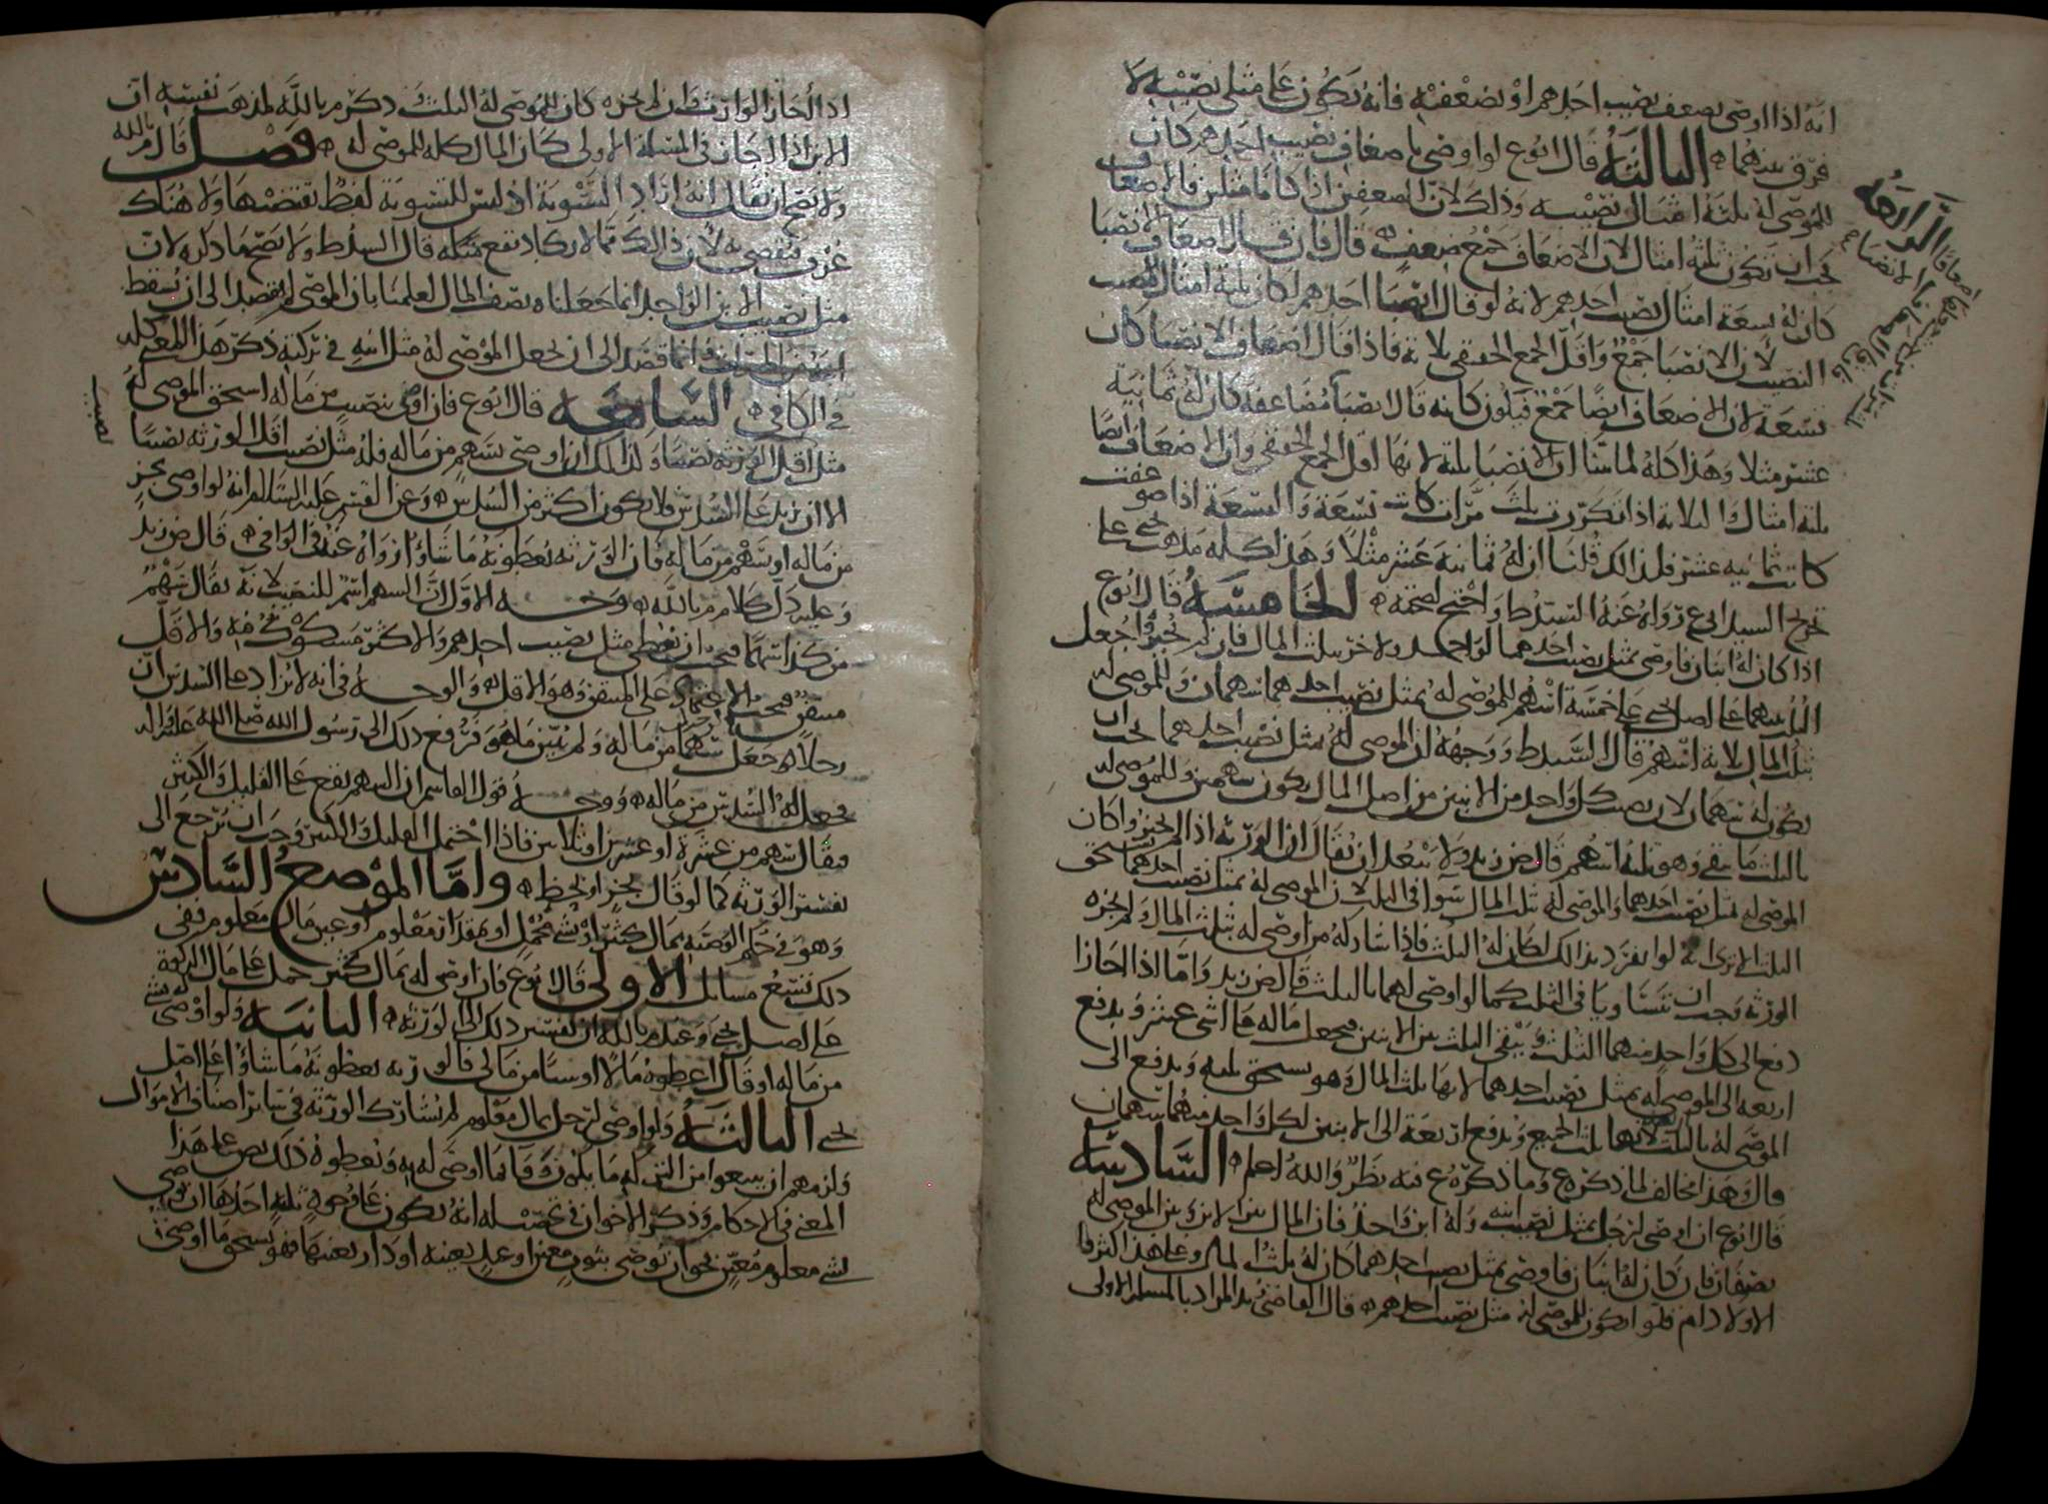 انه اذا اوصى بضعف نصيب احدهم او بضعفيه فانه يكون على مثلي نصيبه لا
فرق بينهما الثالثة قال ابوع لو اوصى باضعاف نصيب احدهم كان
للموصى له ثلثة امثال نصيبه وذلك لان الضعفين اذا كانا مثلين فالاضعاف
يجب ان تكون ثلثة امثال لان الاضعاف جمع ضعف قال فان قال اضعاف الانصبا
كان له تسعة امثال نصيب احدهم لانه لو قال انصبا احدهم لكان ثلثة امثال النصيب
النصيب لان الانصبا جمع واقل الجمع الحقيقي ثلاثة فاذا قال اضعاف الانصبا كان
تسعة لان الاضعاف ايضا جمع فيكون كانه قال انصبا مضاعفة كان له ثمانية
عشر مثلا وهذا كله لما بينا ان الانصبا ثلثة لانها اقل الجمع الحقيقي وان الاضعاف ايضا
ثلثة امثال والثلاثة اذا تكررت ثلث مرات كانت تسعة والتسعة اذا ضوعفت
كانت ثمانيه عشر فلذلك قلنا ان له ثمانية عشر مثلا وهذا كله مذهب يحيى على
تخريج السيد ابي ع رواه عنه السيد ط واحتج لصحته الخامسة قال ابوع
اذا كان له ابنان فاوصى بمثل نصيب احدهما لواحد ولاخر بثلث المال فان لم يجيزوا جعل
الثلث بينهما على اصل يحيى على خمسة اسهم للموصى له بمثل نصيب احدهما سهمان وللموصى له
بثلث المال ثلاثة اسهم قال السيد ط ووجهه ان الموصى له بمثل نصيب احدهما يجب ان
يكون له سهمان لان نصيب كل واحد من الابنين من اصل المال يكون سهمين وللموصى له
بالثلث ما بقي وهو ثلثة اسهم قال ض زيد ولا يبعد ان يقال ان الورثه اذا لم يجيزوا كان
الموصى له بمثل نصيب احدهما والموصى له بثلث المال سوا في الثلث لان الموصى له بمثل نصيب احدهما يستحق
الثلث الا ترى انه لو انفرد بذلك لكان له الثلث فاذا شاركه من اوصى له بثلث المال ولم يجزه
الورثه وجب ان يتساويا في الثلث كما لو اوصى لهما بالثلث قال ض زيد واما اذا اجازا
دفع الى كل واحد منهما الثلث ويبقى الثلث بين الابنين فيجعل ماله على اثني عشر ويدفع
اربعه الى الموصى له بمثل نصيب احدهما لانها ثلث المال وهو يستحق ثلثه ويدفع الى
الموصى له بالثلث لانها ثلث الجميع ويدفع اربعة الى الابنين لكل واحد منهما سهمان
قال وهذا مخالف لما ذكره ع وما ذكره ع فيه نظر والله اعلم السادسة
قال ابوع ان اوصى لرجل بمثل نصيب ابنه وله ابن واحد فان المال بين الابن وبين الموصى له
نصفان فان كان له ابنان فاوصى بمثل نصيب احدهما كان له ثلث المال وعلى هذا اكثر فا
الاولاد ام قلوا يكون للموصى له مثل نصيب احدهم قال القاضي زيد المراد بالمسله الاولى
الرابعة
اذا اجاز الوارث فان لم يجزه كان للموصى له الثلث ذكر م بالله لمذهب نفسه ان
الابن اذا اجاز في المسئلة الاولى كان المال كله للموصى له فصل قال م بالله
ولا يصح ان يقال انه اراد التسوية اذ ليس للتسوية لفظ يقتضيها ولا هناك
عرف يقتضي به لان ذلك مما لا يكاد يقع مثله قال السيد ط ولا يصح ما ذكره لان
مثل نصيب الابن الواحد انما جعلناه نصف المال لعلمنا بان الموصي لم يقصد الى ان يسقط
انما قصد الى ان يجعل الموصى له مثل ابنه في تركته ذكر هذا المعنى كله
في الكافي السابعة قال ابوع فان اوصى بنصيب من ماله استحق الموصى له
نصيب
مثل اقل الورثه نصيبا وكذلك ان اوصى بسهم من ماله فله مثل نصيب اقل الورثه نصيبا
الا ان يزيد على السدس فلا يكون اكثر من السدس وعن القسم عليه السلام انه لو اوصى بجزء
من ماله او بسهم من ماله فان الورثه يعطونه ما شاؤا رواه عنه في الوافي قال ض زيد
وعليه دل كلام م بالله وجه الاول ان السهم اسم للنصيب لانه يقال سهم
من كذا سهما فيجب ان يعطى مثل نصيب احدهم والاكثر مشكوك فيه والاقل
متيقن فيجب الاعتماد على المتيقن وهو الاقل والوجه في انه لا يزاد على السدس ان
رجلا جعل لرجل سهما من ماله ولم يبين ما هو فرفع ذلك الى رسول الله صلى الله عليه واله
فجعل له السدس من ماله ووجه قول القاسم ان السهم يقع على القليل والكثير
فيقال سهم من عشرة او عشرين او ثلاثين فاذا احتمل القليل والكثير وجب ان يرجع الى
تفسير الورثه كما لو قال بجزء او بحظ واما الموضع السادس
وهو في حكم الوصيه بمال كثير او شي مجمل او بمقدار معلوم او عين مال معلوم ففي
ذلك تسع مسائل الاولى قال ابوع فان اوصى له بمال كثير حمل على مال الزكوة
على اصل يحيى وعند م بالله ان تفسير ذلك الى الورثه الثانية ولو اوصى له بشي
من ماله او قال اعطوه مالا او شيا من مالي فالورثه يعطونه ما شاؤا على اصل
يحيى الثالثة ولو اوصى لرجل بمال معلوم لم يشارك الورثه في سائر اصناف الاموال
ولزمهم ان يبيعوا من التركه ما يكون وفا بما اوصى له به ويعطوه ذلك نص على هذا
المعنى في الاحكام وذكر الاخوان في تحصيله انه يكون على وجوه ثلثة احدها ان يوصي
بشي معلوم معين نحو ان يوصي بثوب معين او عبد بعينه او دار بعينها فهو يستحق ما اوصى